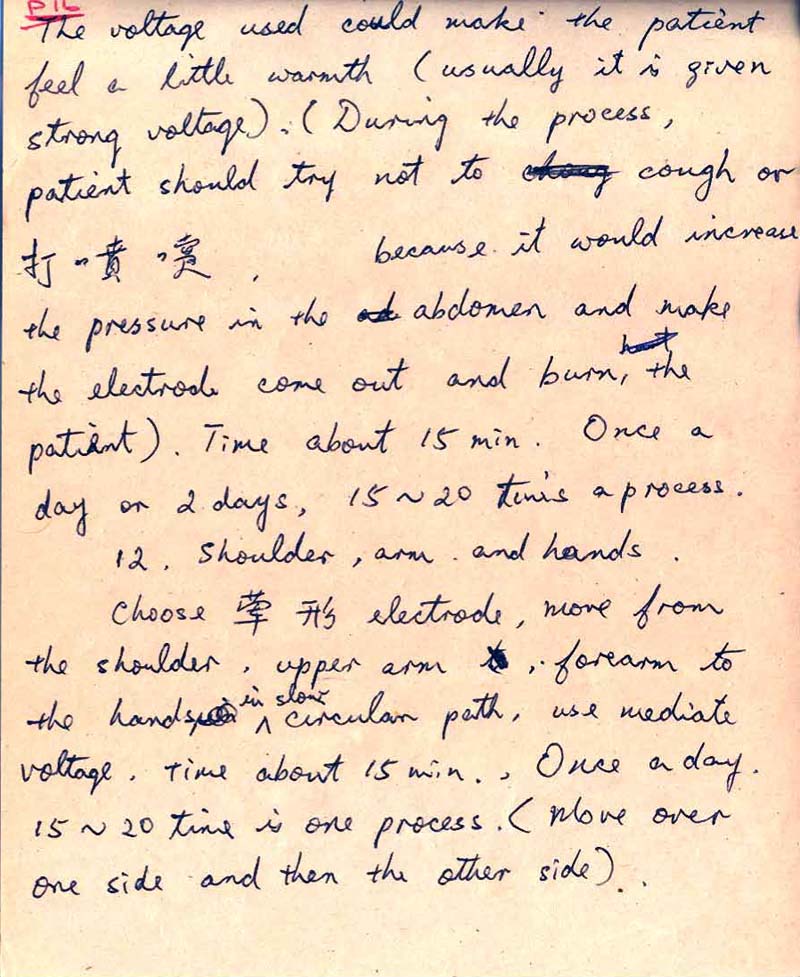 P16
The voltage used could make the patient
feel a little warmth (usually it is given
strong voltage). (During the process,
patient should try not to cough or
打噴嚏, because it would increase
the pressure in the abdomen and make
the electrode come out and burn, the
patient). Time about 15 min. Once a
day or 2 days, 15~20 times a process.
12. Shoulder, arm and hands.
Choose 蕈形 electrode, move from
the shoulder, upper arm, forearm to
the hands, in slow circular path, use mediate
voltage. Time about 15 min., Once a day.
15~20 time is one process. (Move over
one side and then the other side).